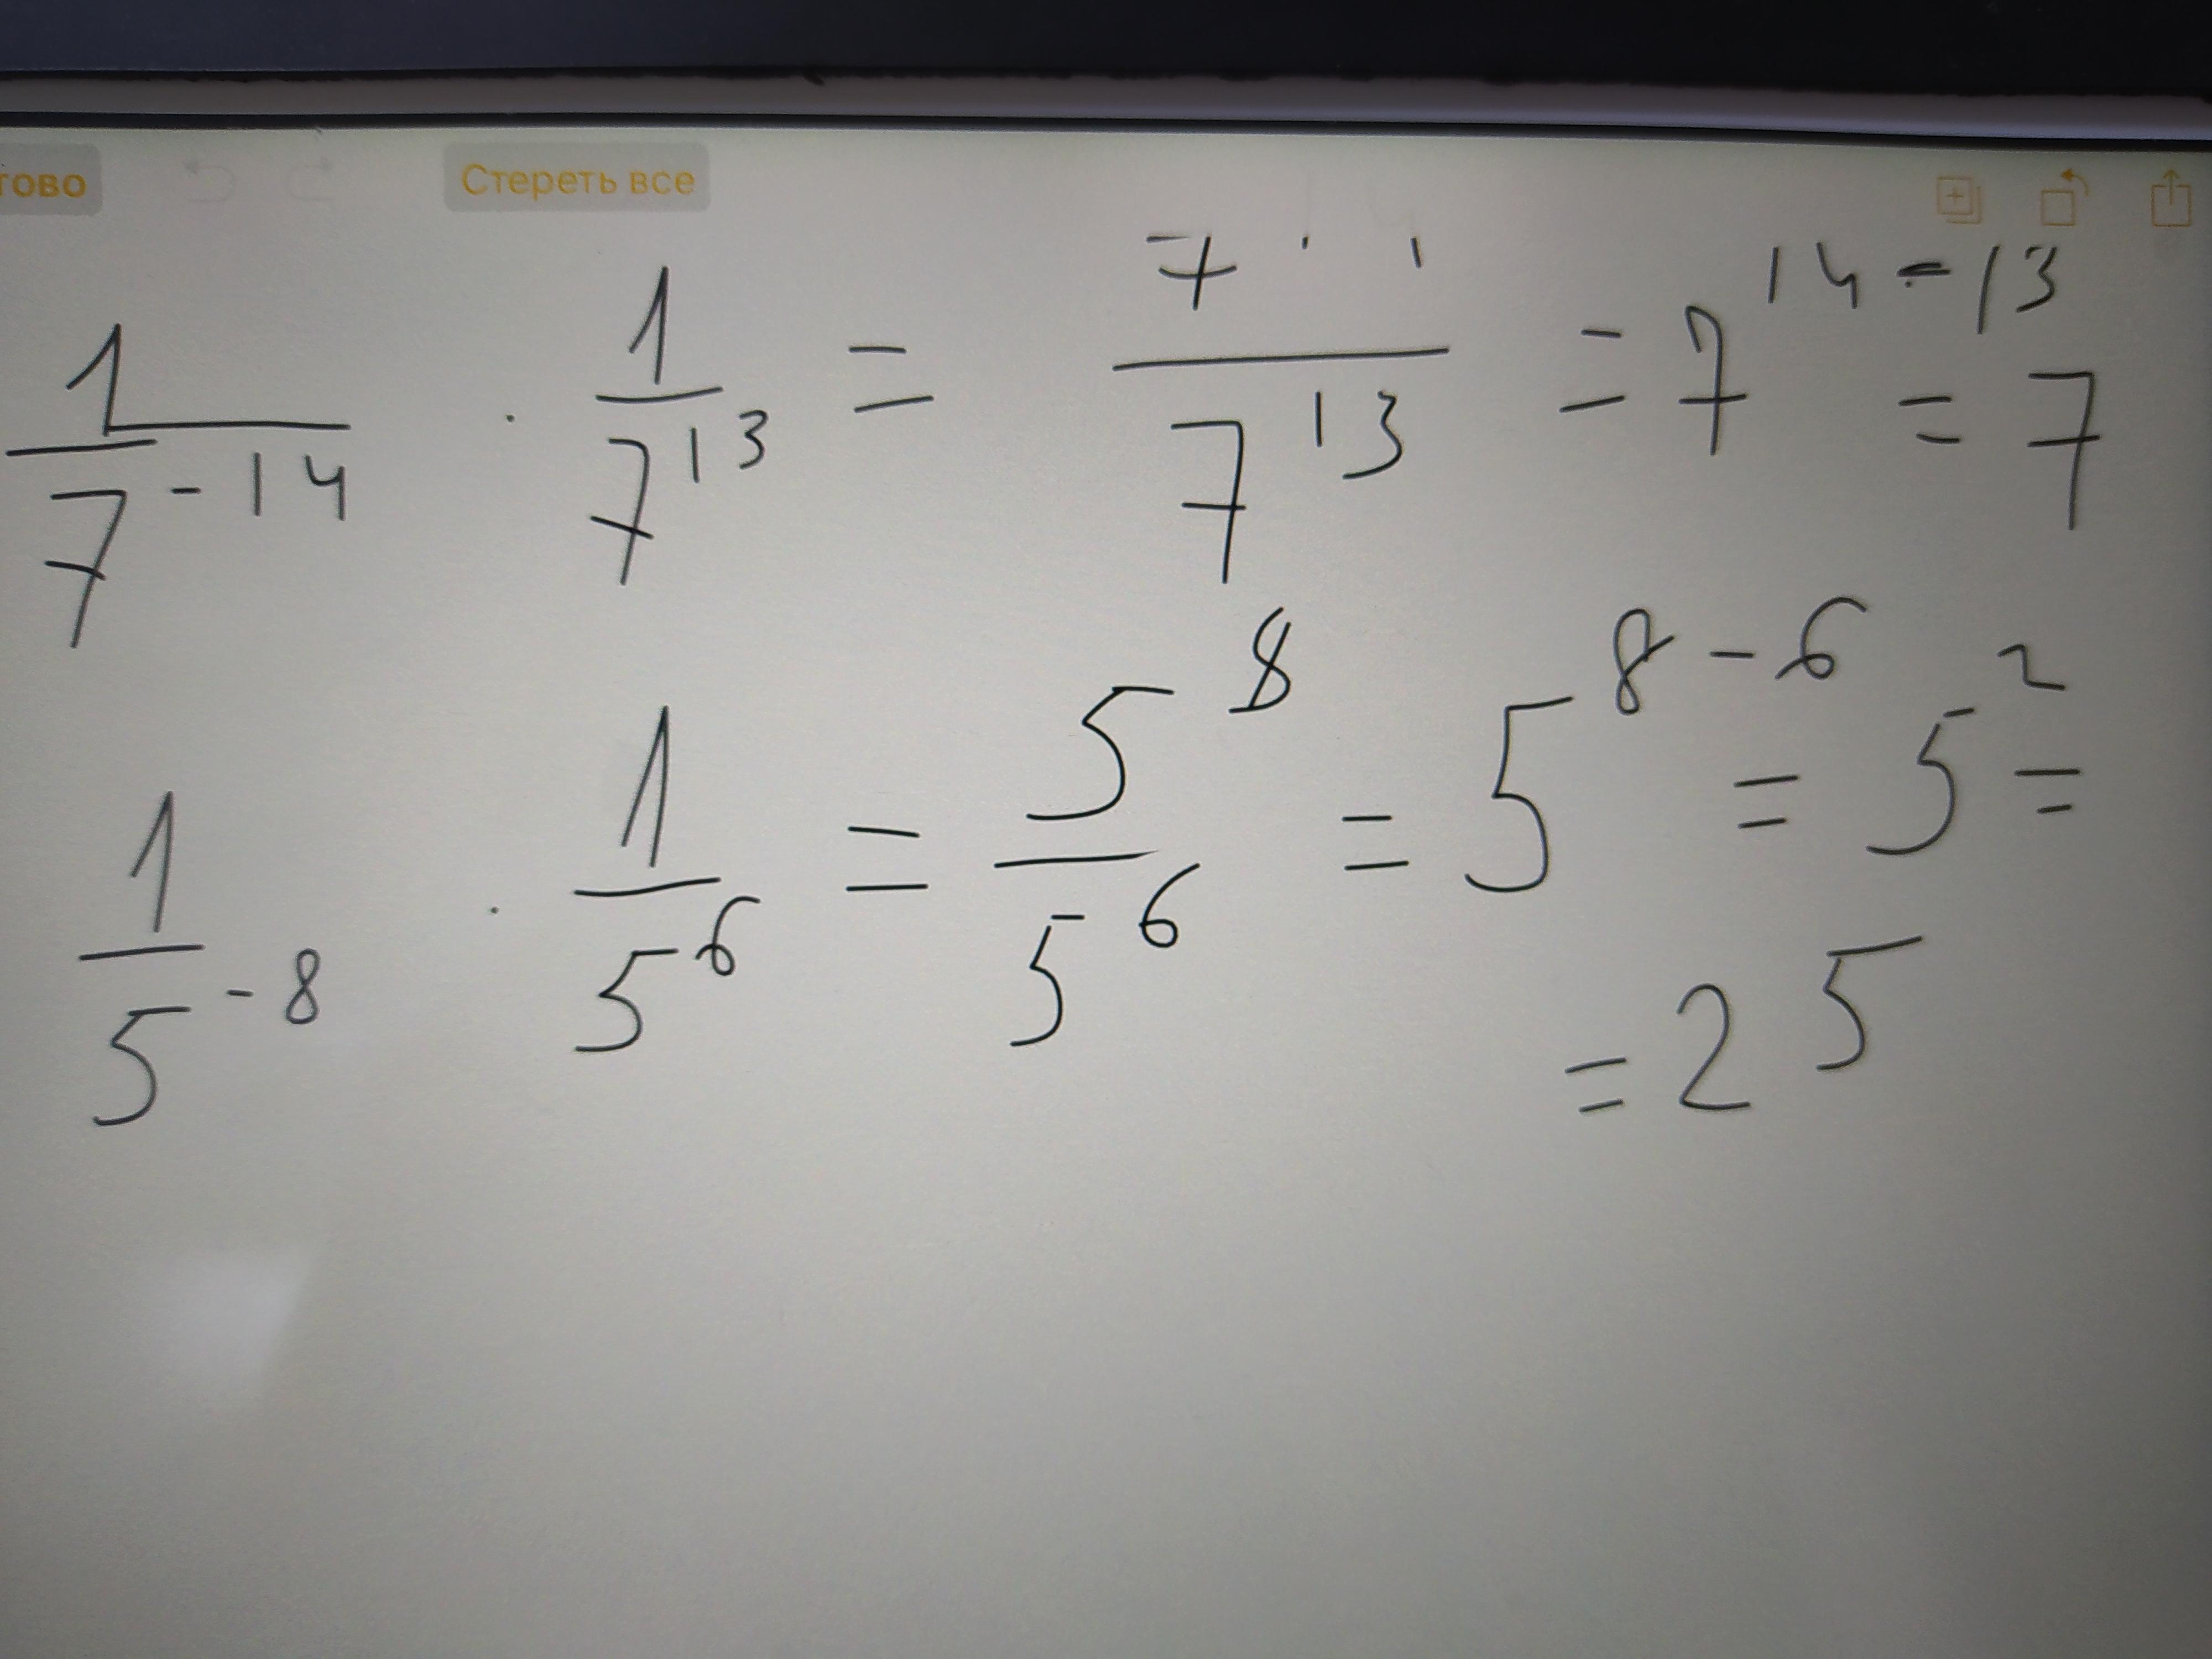 Стереть все
1/7^-14 · 1/7^13 = 7/7^13 = 7^14-13 = 7
1/5^-8 · 1/5^6 = 5^8/5^6 = 5^8-6 = 5^2 =
= 25